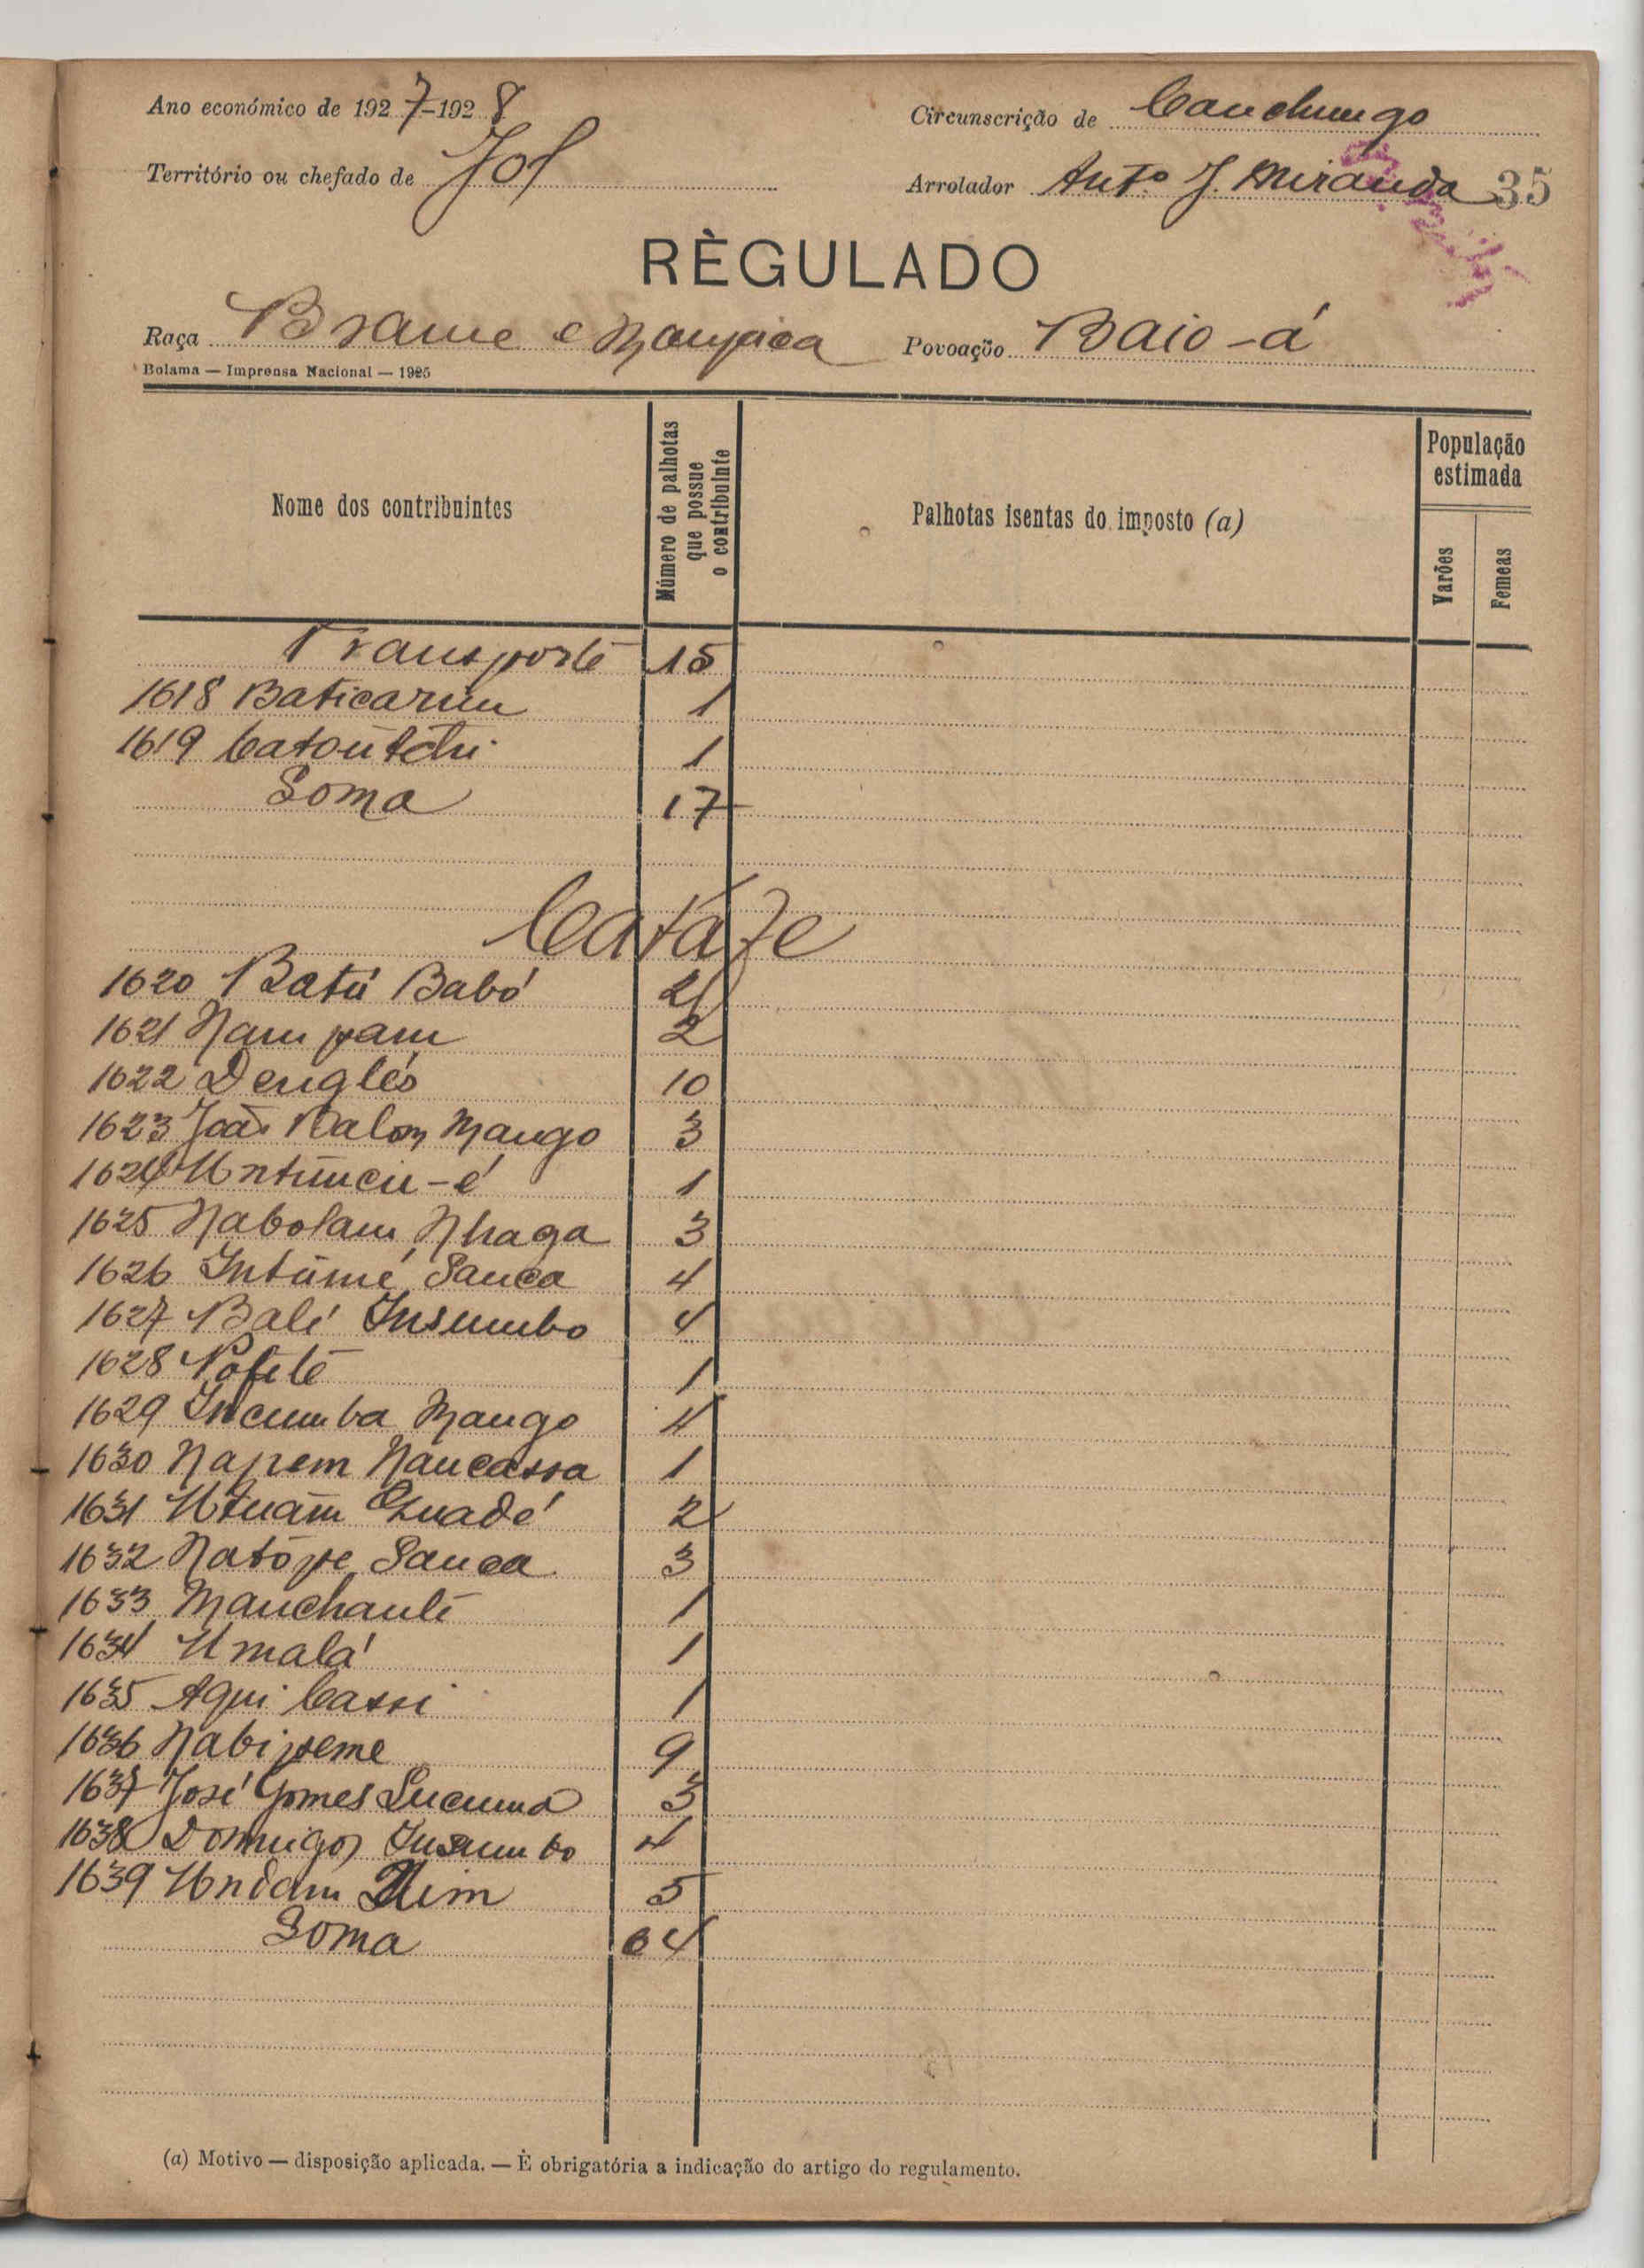 Ano económico de 1927-1928
Circunscrição de Canchungo
Território ou chefado de Jol
Arrolador Antº J. Miranda 35
RÈGULADO
Raça Brame e Manjaca Povoação Baio-á
Bolama — Imprensa Nacional — 1925
Nome dos contribuintes
Número de palhotas que possue o contribuinte
Palhotas isentas do imposto (a)
População estimada
Varões
Femeas
Transporte 15
1618 Baticarum 1
1619 Catoutchi 1
Soma 17
Catáfe
1620 Batú Babó 2
1621 Nam pam 2
1622 Denglés 10
1623 João Balom Mango 3
1624 Untuncu-é 1
1625 Nabolam Nhaga 3
1626 Intúmé Sanca 4
1627 Balé Insumbo 4
1628 1
1629 Incumba Mango 4
1630 Napem Naucassa 1
1631 Utuam Quadé 2
1632 Natópe Sanca 3
1633 Manchanté 1
1634 Umalá 1
1635 Aqui Cassi 1
1636 Nabipeme 9
1637 José Gomes 3
1638 Domingos Insumbo 4
1639 Undam 5
Soma 64
(a) Motivo — disposição aplicada. — È obrigatória a indicação do artigo do regulamento.